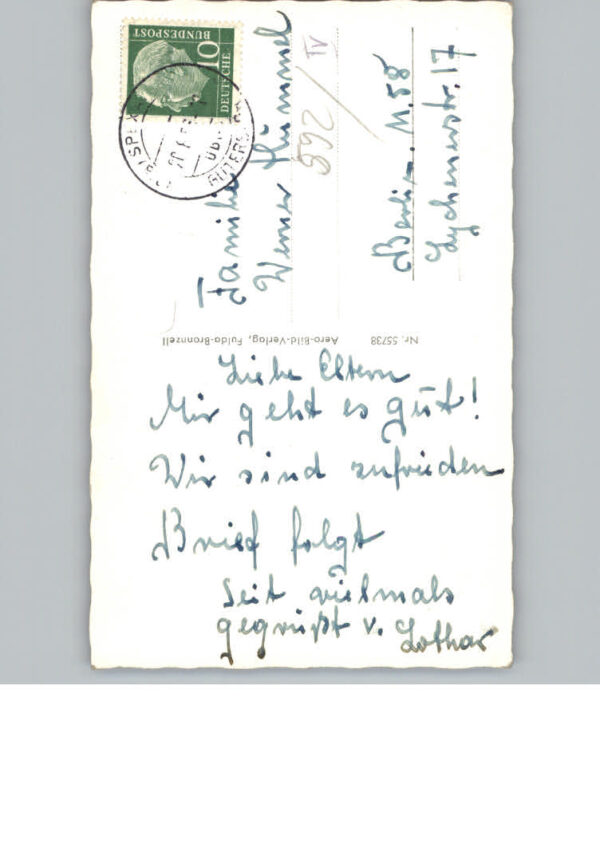 DEUTSCHE
BUNDESPOST
10
Familie
Werner Hümmel
592/
IV
Berlin N. 58
Lychenerstr. 17
Nr. 55738
Aero-Bild-Verlag, Fulda-Bronnzell
Liebe Eltern
Mir geht es gut!
Wir sind zufrieden
Brief folgt
Seit vielmals
gegrüßt v. Lothar